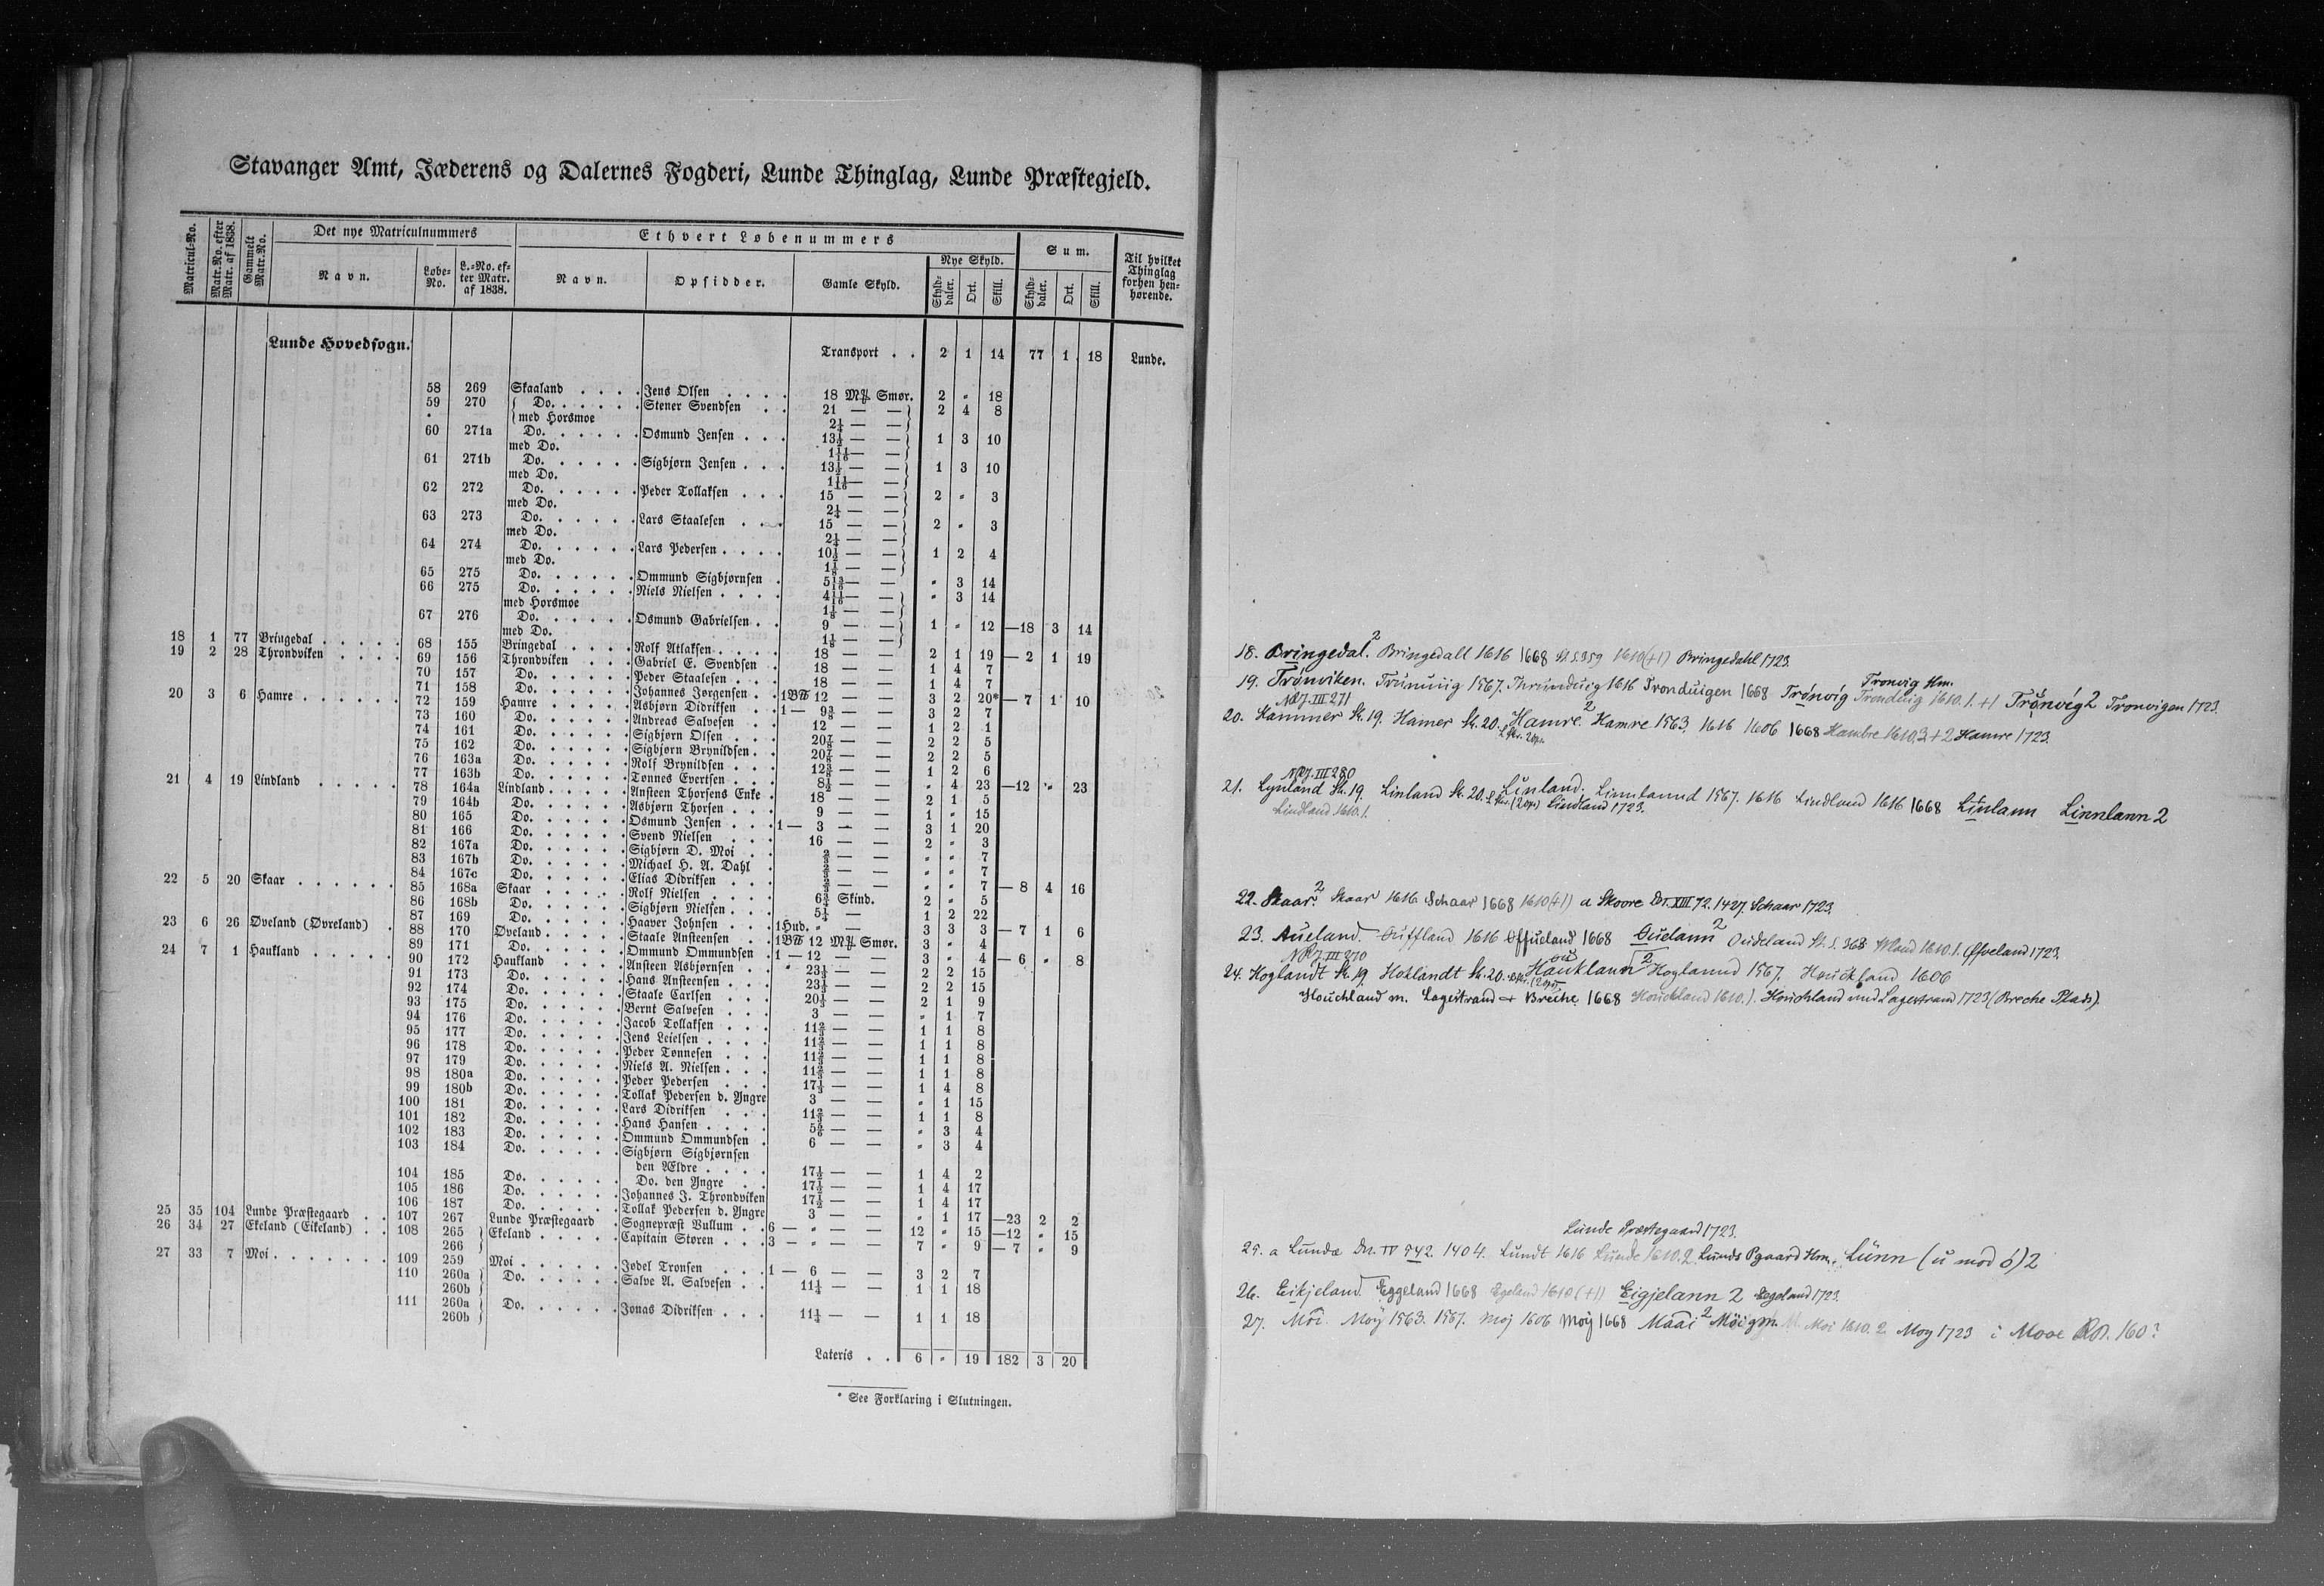 Stavanger Amt, Jæderens og Dalernes Fogderi, Lunde Thinglag, Lunde Præstegjeld.
Matricul-No. Matr.No. efter Matr. af 1838. Gammelt Matr.-No. Det nye Matriculnummers Ethvert Løbenummers Sum. Til hvilket Thinglag forhen henhørende.
Navn. Løbe-No. L.-No. efter Matr. af 1838. Navn. Opsidder. Gamle Skyld. Nye Skyld. Skylddaler. Ort. Skill. Skylddaler. Ort. Skill.
Lunde Hovedsogn. Transport . . 2 1 14 77 1 18 Lunde.
58 269 Skaaland . . . . Jens Olsen . . . . 18 Mß Smør. 2 " 18
59 270 Do. . . . . . Stener Svendsen . . 21 — — 2 4 8
med Horsmoe 2¼ — —
60 271a Do. . . . . . Osmund Jensen . . . 13½ — — 1 3 10
med Do. 1 11/16 — —
61 271b Do. . . . . . Sigbjørn Jensen . . . 13½ — — 1 3 10
med Do. 1 11/16 — —
62 272 Do. . . . . . Peder Tollaksen . . . 15 — — 2 " 3
med Do. 2¼ — —
63 273 Do. . . . . . Lars Staalesen . . . 15 — — 2 " 3
med Do. 2¼ — —
64 274 Do. . . . . . Lars Pedersen . . . . 10½ — — 1 2 4
med Do. 1⅛ — —
65 275 Do. . . . . . Ommund Sigbjørnsen . 5 13/16 — — " 3 14
66 275 Do. . . . . . Niels Nielsen . . . . 4 11/16 — — " 3 14
med Horsmoe 1⅛ — —
67 276 Do. . . . . . Osmund Gabrielsen . . 9 — — 1 " 12 —18 3 14
med Do. 1⅛ — —
18 1 77 Bringedal . . . . . 68 155 Bringedal . . . . Rolf Atlaksen . . . . 18 — — 2 1 19 — 2 1 19
19 2 28 Throndviken . . . . 69 156 Throndviken . . . Gabriel E. Svendsen . 18 — — 1 4 7
70 157 Do. . . . . . Peder Staalesen . . . 18 — — 1 4 7
71 158 Do. . . . . . Johannes Jørgensen . . 1 B℔ 12 — — 3 2 20* — 7 1 10
20 3 6 Hamre . . . . . . 72 159 Hamre . . . . . Asbjørn Didriksen . . 1 — 9⅜ — — 3 2 7
73 160 Do. . . . . . Andreas Salvesen . . 12 — — 1 2 1
74 161 Do. . . . . . Sigbjørn Olsen . . . 20⅞ — — 2 2 5
75 162 Do. . . . . . Sigbjørn Brynildsen . . 20⅞ — — 2 2 5
76 163a Do. . . . . . Rolf Brynildsen . . . 12⅜ — — 1 2 6
77 163b Do. . . . . . Tønnes Evertsen . . . 8½ — — " 4 23 —12 " 23
21 4 19 Lindland . . . . . 78 164a Lindland . . . . . Ansteen Thorsens Enke . 18 — — 2 1 5
79 164b Do. . . . . . Asbjørn Thorsen . . . 9 — — 1 " 15
80 165 Do. . . . . . Osmund Jensen . . . 1 — 3 — — 3 1 20
81 166 Do. . . . . . Svend Nielsen . . . 16 — — 2 " 3
82 167a Do. . . . . . Sigbjørn D. Moi . . ⅔ — — " " 7
83 167b Do. . . . . . Michael H. A. Dahl . ⅔ — — " " 7
84 167c Do. . . . . . Elias Didriksen . . . ⅔ — — " " 7 — 8 4 16
22 5 20 Skaar . . . . . . 85 168a Skaar . . . . . Rolf Nielsen . . . . 6¾ Skind. 2 " 5
86 168b Do. . . . . . Sigbjørn Nielsen . . . 5¼ — 1 2 22
87 169 Do. . . . . . Haaver Johnsen . . . 1 Hud. " — 3 3 3 — 7 1 6
23 6 26 Øveland (Øvreland) . 88 170 Øveland . . . . . Staale Ansteensen . . 1 B℔ 12 Mß Smør. 3 " 4
89 171 Do. . . . . . Ommund Ommundsen . 1 — 12 — — 3 " 4 — 6 " 8
24 7 1 Haukland . . . . . 90 172 Haukland . . . . Ansteen Asbjørnsen . . " 23⅓ — — 2 2 15
91 173 Do. . . . . . Hans Ansteensen . . . 23⅓ — — 2 2 15
92 174 Do. . . . . . Staale Carlsen . . . 20⅓ — — 2 1 9
93 175 Do. . . . . . Bernt Salvesen . . . 3 — — " 1 7
94 176 Do. . . . . . Jacob Tollaksen . . . 11⅔ — — 1 1 8
95 177 Do. . . . . . Jens Leielsen . . . . 11⅔ — — 1 1 8
96 178 Do. . . . . . Peder Tønnesen . . . 11⅔ — — 1 1 8
97 179 Do. . . . . . Niels A. Nielsen . . . 11⅔ — — 1 1 8
98 180a Do. . . . . . Peder Pedersen . . . 17⅓ — — 1 4 8
99 180b Do. . . . . . Tollak Pedersen d. Yngre 3 — — " 1 15
100 181 Do. . . . . . Lars Didriksen . . . 11⅔ — — 1 1 8
101 182 Do. . . . . . Hans Hansen . . . . 5⅚ — — " 3 4
102 183 Do. . . . . . Ommund Ommundsen . 6 — — " 3 4
103 184 Do. . . . . . Sigbjørn Sigbjørnsen
den Ældre . . . . 17½ — — 1 4 2
104 185 Do. . . . . . Do. den Yngre . . 17½ — — 1 4 17
105 186 Do. . . . . . Johannes J. Throndviken 17½ — — 1 4 17
106 187 Do. . . . . . Tollak Pedersen d. Yngre 3 — — " 1 17 —23 2 2
25 35 104 Lunde Præstegaard . . 107 267 Lunde Præstegaard . Sognepræst Bullum . . 6 — " — — 12 " 15 —12 " 15
26 34 27 Ekeland (Eikeland) . . 108 265 266 Ekeland . . . . . Capitain Støren . . . 3 — " — — 7 " 9 — 7 " 9
27 33 7 Moi . . . . . . . 109 259 Moi . . . . . . Jødel Tronsen . . . 1 — 6 — — 3 2 7
110 260a 260b Do. . . . . . Salve A. Salvesen . . 11¼ — — 1 1 18
111 260a 260b Do. . . . . . Jonas Didriksen . . . 11¼ — — 1 1 18
Lateris . . 6 " 19 182 3 20
* See Forklaring i Slutningen.
18. Bringedal.² Bringedall 1616 1668 St. S. 359 1610 (+1) Bringedahl 1723.
Tronvig Hm.
19. Trønviken. Trünuiig 1567. Thrunduig 1616 Tronduigen 1668 Trønvig Tronduig 1610. 1. +1 Trønvig 2 Tronvigen 1723.
NRJ. III 271
20. Hammer St. 19. Hamer St. 20. Hamre.² Hamre 1563 1616 1606 1668 Hambre 1610. 3+2 Hamre 1723.
NRJ. III 280
21. Lynland St. 19. Linland St. 20. Linland. Linnlannd 1567. 1616 Lindland 1616 1668 Linlann Linnlann 2
Lindland 1610. 1. Lindland 1723.
22. Skaar.² Skaar 1616 Schaar 1668 1610 (+1) a Skoore Dn. XIII 72. 1427. Schaar 1723.
23. Aueland. Øuffland 1616 Øffueland 1668 Øuelann² Oudeland St. S. 368 1610. 1. Øfveland 1723.
NRJ. III 270
24. Hoglandt St. 19. Hoklandt St. 20. Hauklann² Hoglannd 1567. Houckland 1606
Houchland m. Lagestrand + Breche 1668 Houckland 1610. 1. Houchland med Lagestrand 1723 (Breche Plads).
Lunde Præstegaard 1723.
25. a Lundæ Dn. IV 542. 1404. Lundt 1616 Lunde 1610. 2. Lunds Pgaard Hm. Lünn (ü mod ó) 2
26. Eikjeland. Eggeland 1668 Egeland 1610 (+1) Eigjelann 2 Egeland 1723.
27. Moi. Moÿ 1563. 1567. Moj 1606 Moÿ 1668 Maai² Möi gm. Moi 1610. 2. Moy 1723 i Mooe RB. 160?